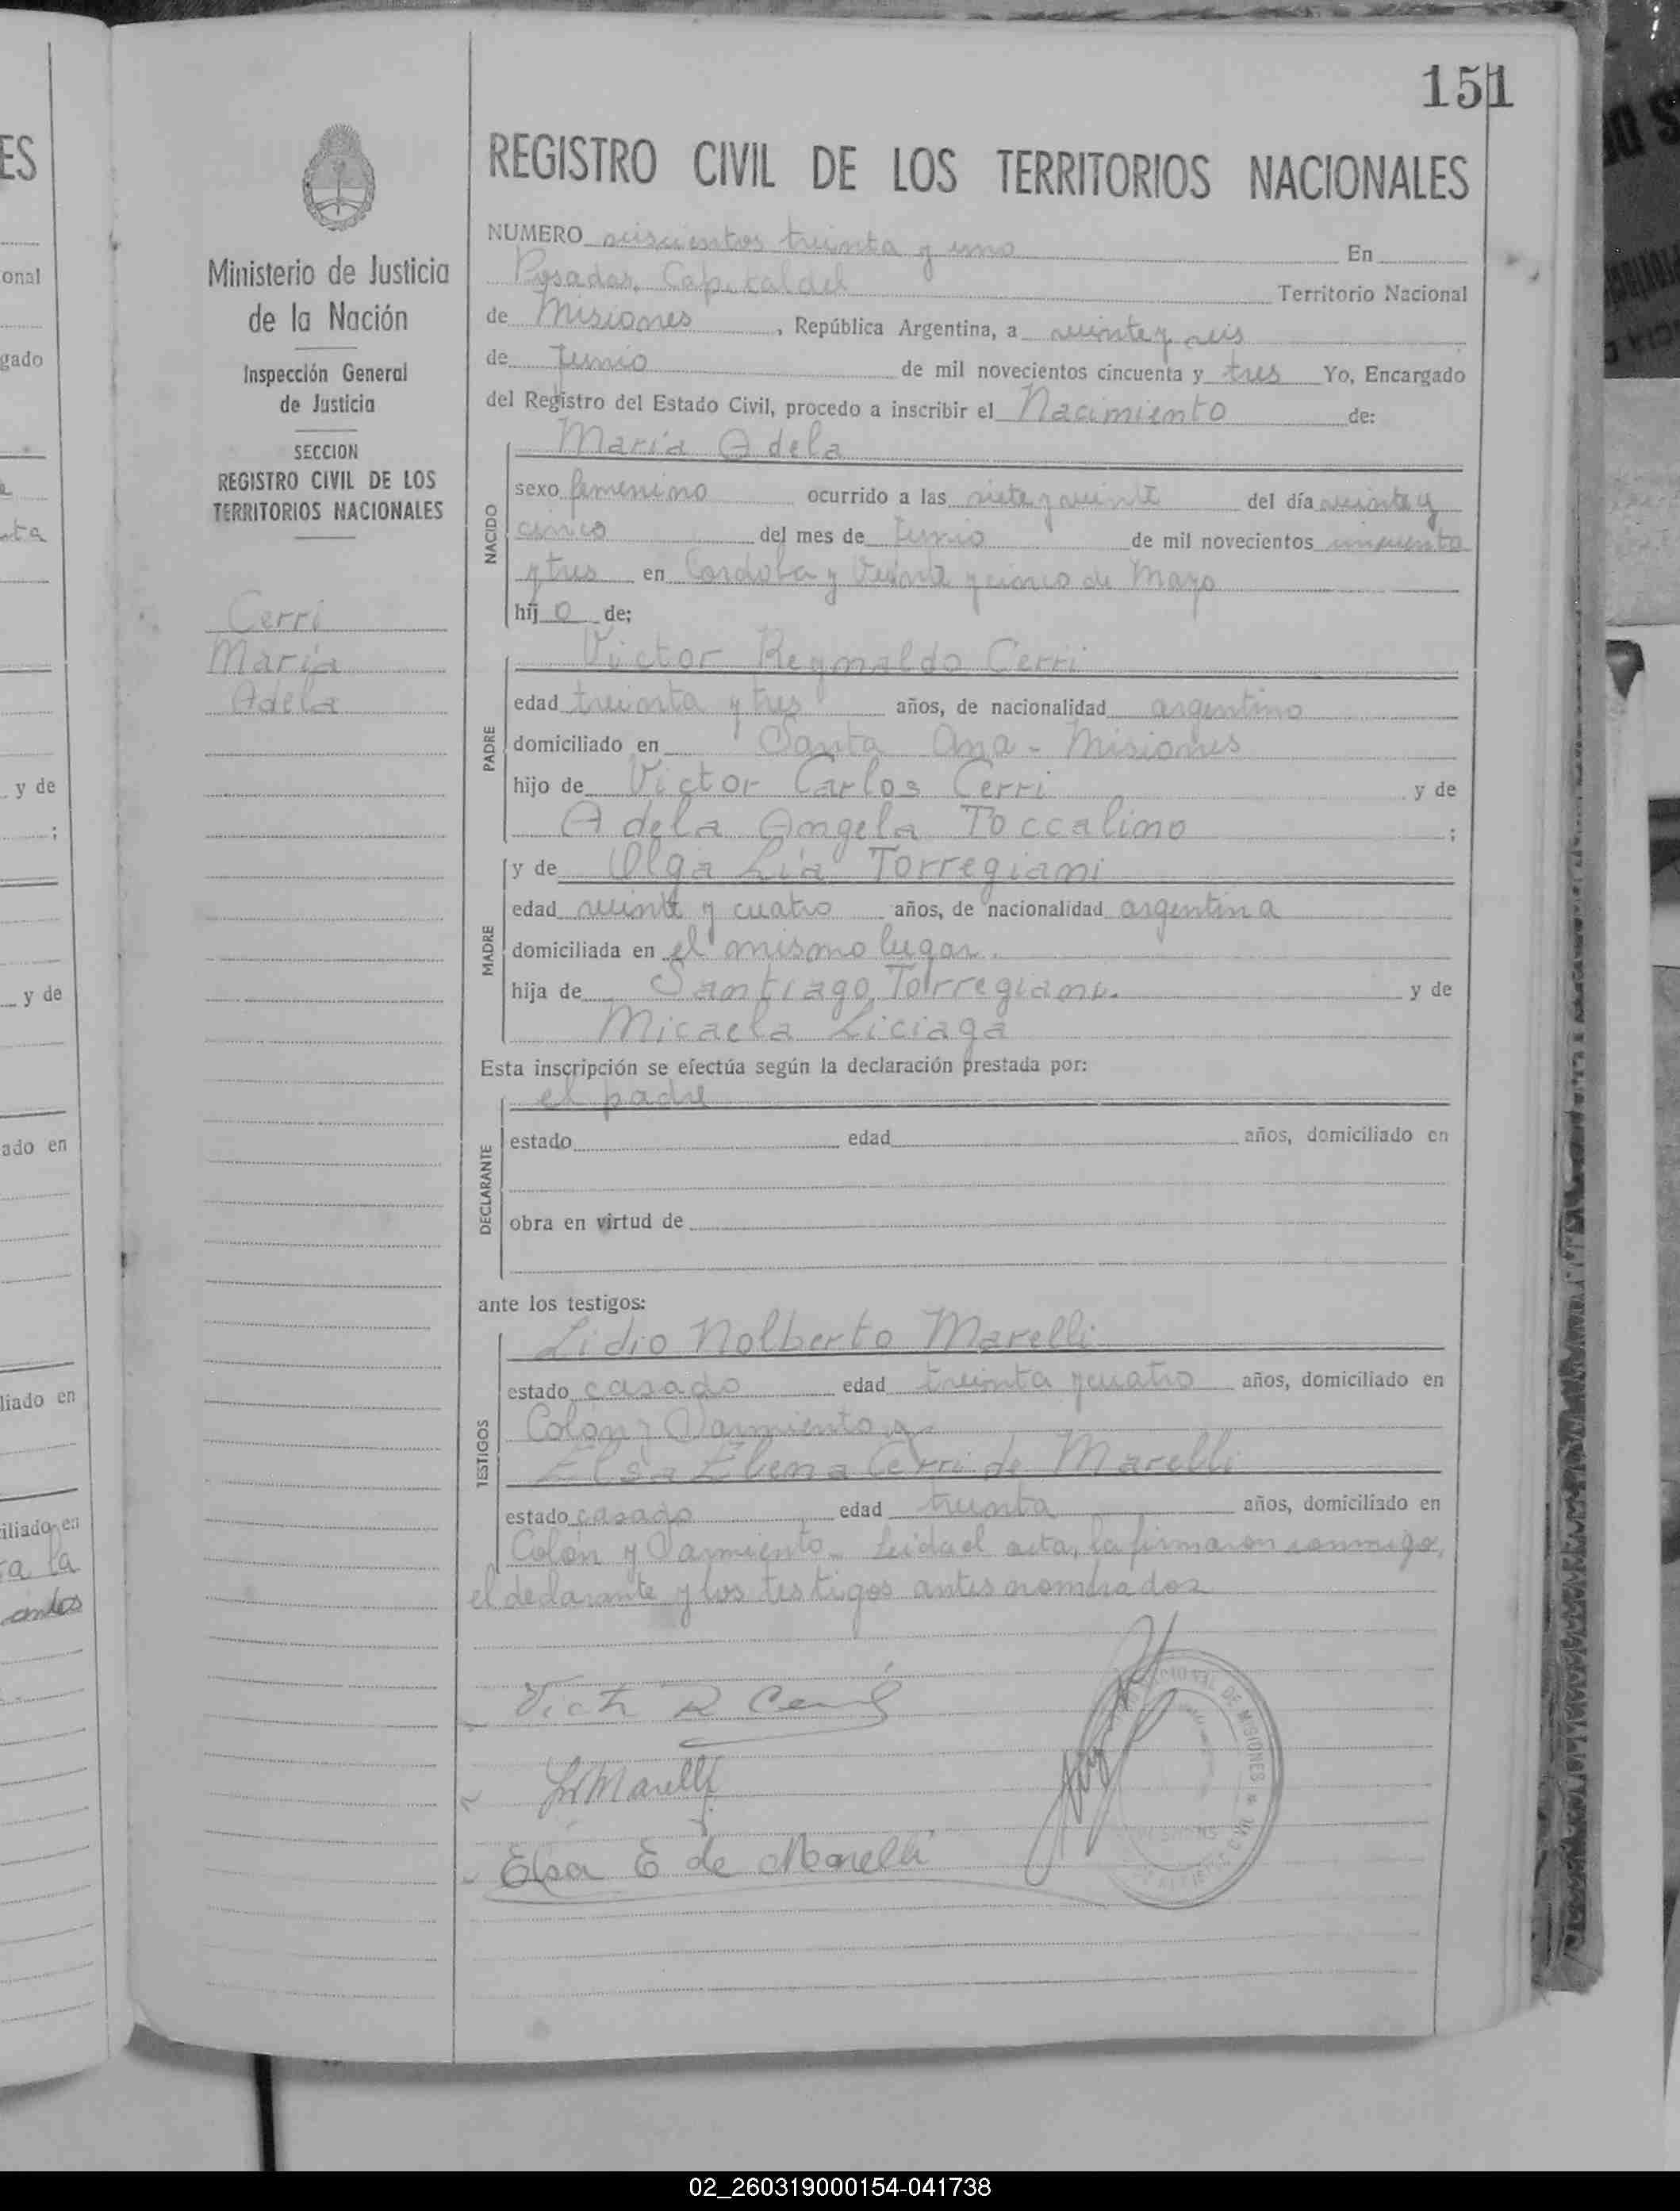 151
REGISTRO CIVIL DE LOS TERRITORIOS NACIONALES
Ministerio de Justicia
de la Nación
Inspección General
de Justicia
SECCION
REGISTRO CIVIL DE LOS
TERRITORIOS NACIONALES
Cerri
María
Adela
NUMERO seiscientos treinta y uno En
Posadas, Capital del Territorio Nacional
de Misiones, República Argentina, a veinte y seis
de Junio de mil novecientos cincuenta y tres Yo, Encargado
del Registro del Estado Civil, procedo a inscribir el Nacimiento de:
NACIDO
María Adela
sexo femenino ocurrido a las siete y veinte del día veinte y
cinco del mes de Junio de mil novecientos cincuenta
y tres en Cordoba y Veinte y cinco de Mayo
hij o de;
PADRE
Victor Reynaldo Cerri
edad treinta y tres años, de nacionalidad argentino
domiciliado en Santa Ana - Misiones
hijo de Victor Carlos Cerri y de
Adela Angela Toccalino ;
MADRE
y de Olga Lía Torregiani
edad veinte y cuatro años, de nacionalidad argentina
domiciliada en el mismo lugar.
hija de Santiago Torregiani. y de
Micaela Liciaga
Esta inscripción se efectúa según la declaración prestada por:
DECLARANTE
el padre
estado edad años, domiciliado en
obra en virtud de
ante los testigos:
TESTIGOS
Lidio Nolberto Marelli
estado casado edad treinta y cuatro años, domiciliado en
Colon y Sarmiento y
Elsa Elena Cerri de Marelli
estado casado edad treinta años, domiciliado en
Colón y Sarmiento - Leida el acta, la firmaron conmigo,
el declarante y los testigos antes nombrados
Victor R Cerri
Marelli
Elsa E de Marelli
DE MISIONES
ES
onal
gado
nta
y de
;
y de
ado en
liado en
iliado en
a la
02_260319000154-041738